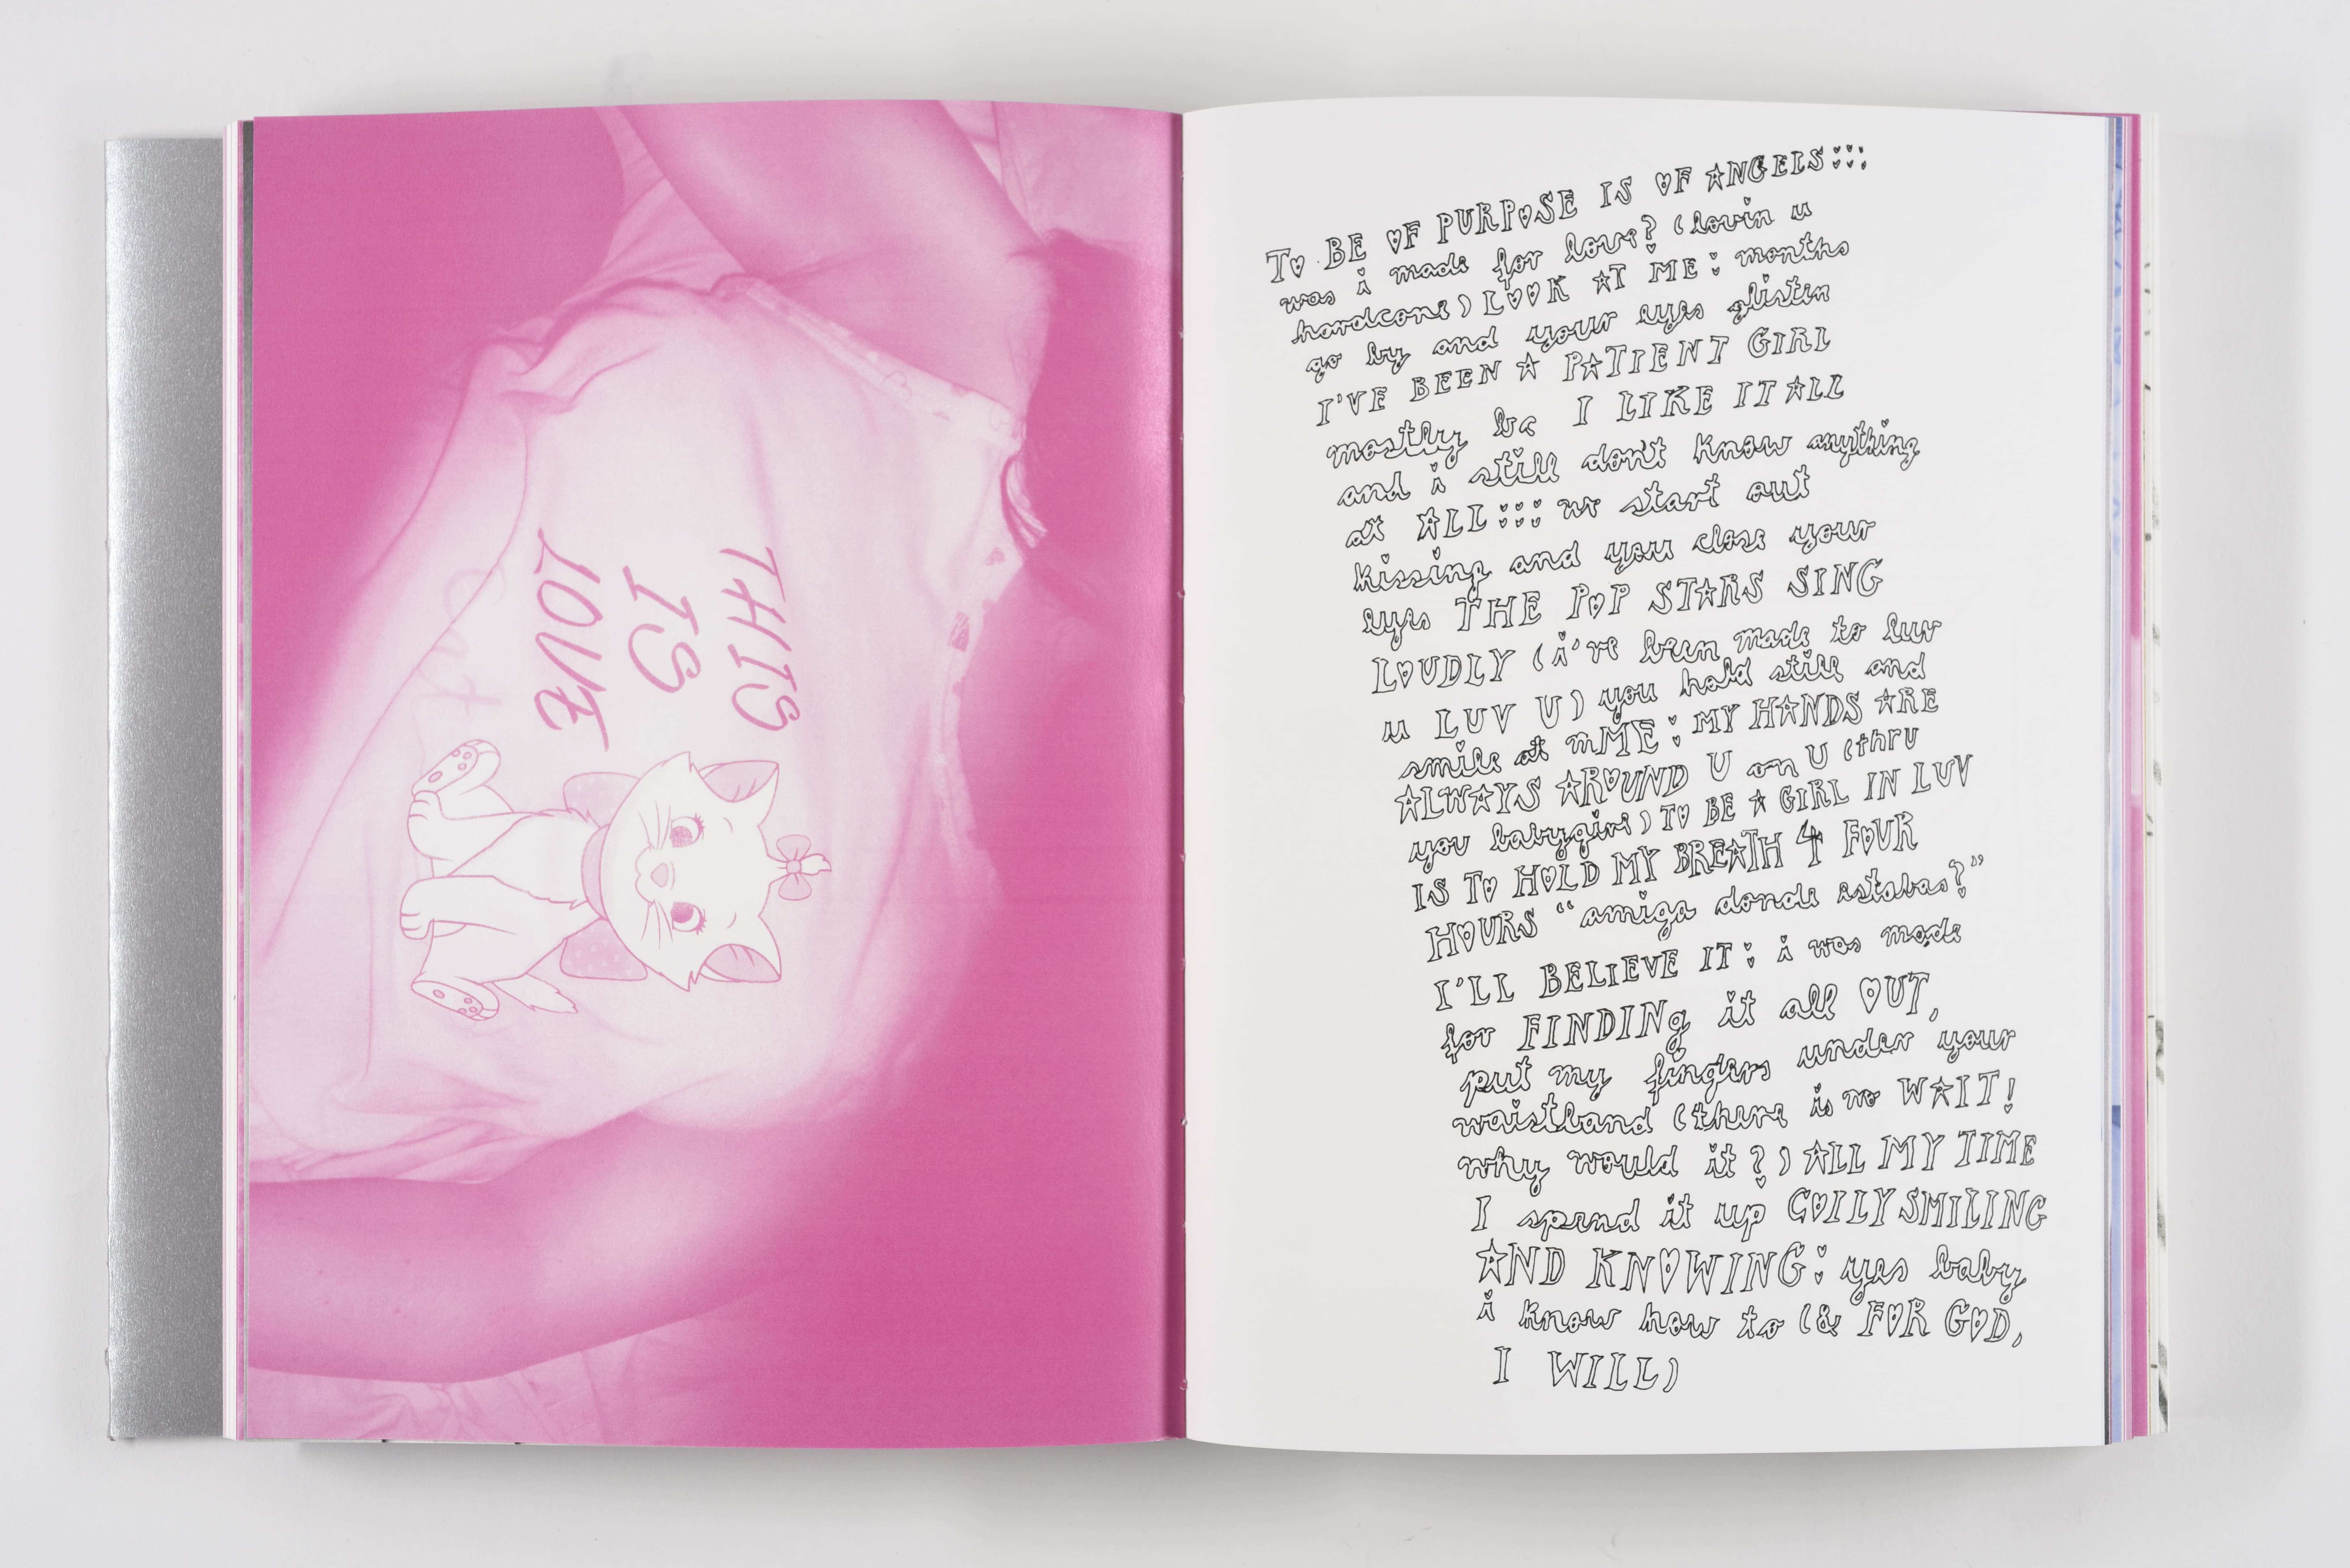 THIS
IS
LOVE
TO BE OF PURPOSE IS OF ANGELS:::
was i made for love? (lovin u
hardcore) LOOK AT ME: months
go by and your eyes glisten
I'VE BEEN A PATIENT GIRL
mostly bc I LIKE IT ALL
and i still don't know anything
at ALL::: we start out
kissing and you close your
eyes THE POP STARS SING
LOUDLY (i've been made to luv
u LUV U) you hold still and
smile at mME: MY HANDS ARE
ALWAYS AROUND U on U (thru
you babygirl) TO BE A GIRL IN LUV
IS TO HOLD MY BREATH 4 FOUR
HOURS "amiga donde estabas?"
I'LL BELIEVE IT: i was made
for FINDINg it all OUT,
put my fingers under your
waistband (there is no WAIT!
why would it?) ALL MY TIME
I spend it up COILY SMILING
AND KNOWING: yes baby
i know how to (& FOR GOD,
I WILL)